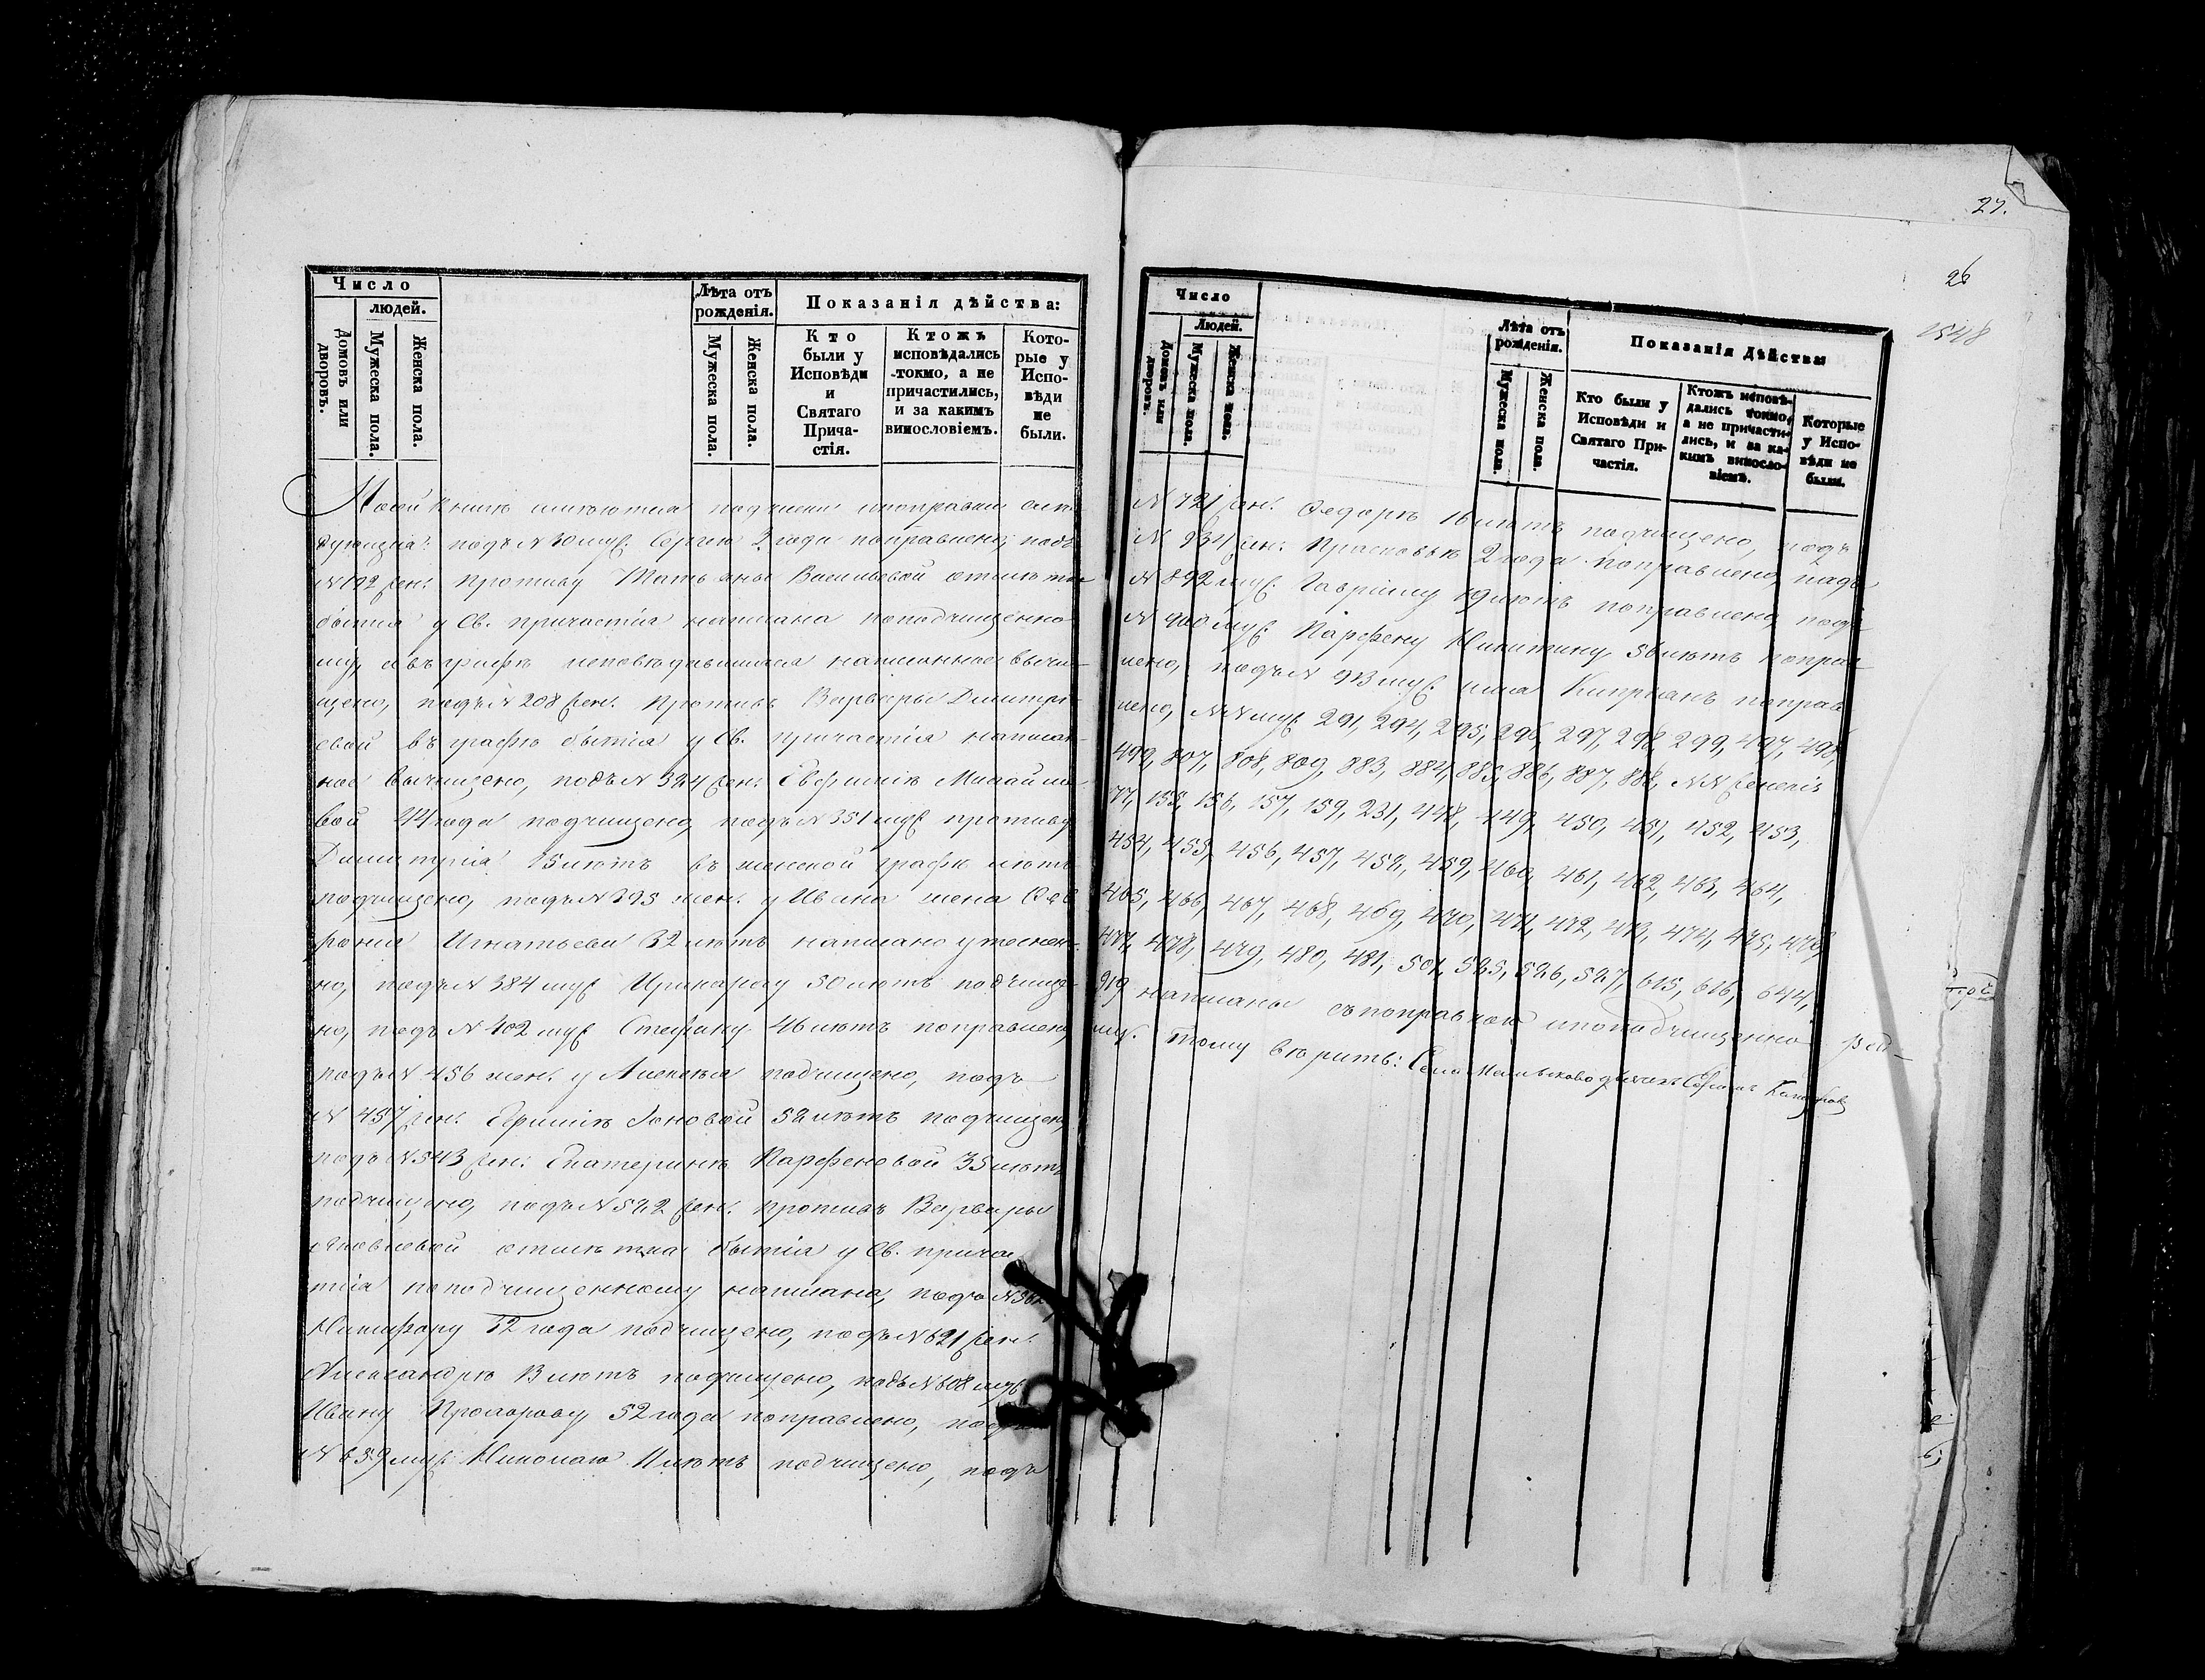 Число
людей.
Домовъ или дворовъ.
Мужеска пола.
Женска пола.
Лѣта отъ рожденія.
Мужеска пола.
Женска пола.
Показанія дѣйства:
Кто были у Исповѣди и Святаго Прича-стія.
Ктожъ исповѣдались -токмо, а не причастились, и за какимъ винословіемъ.
Кото-рые у Испо-вѣди не были.
книгѣ имѣются
дующія: подъ N 30 муж. Сергею 3 года поправлено, подъ
N 192 жен. противу Татьяны Васильевой отмѣтка
бытія у Св. причастія написана по подчищенно-
му, а въ графѣ неисповѣдывшихся написанное вычи-
щено, подъ N 208 жен. противъ Варвары Димитрі-
евой въ графѣ бытія у Св. причастія написан-
ное вычищено, подъ N 324 жен. Евфиміѣ
вой 44 года подчищено, подъ N 351 муж. противу
Димитрія 15 лѣтъ въ женской графѣ лѣтъ
подчищено, подъ N 395 жен. у Ивана жена Фев
ронія Игнатьева 32 лѣтъ написано утеснен-
но, подъ N 384 муж. Иринарху 50 лѣтъ подчище-
но, подъ N 402 муж. Стефану 46 лѣтъ поправлено,
подъ N 456 жен. у Алексѣя подчищено, подъ
N 457 жен. Ефиміѣ Іоновой 52 лѣтъ подчищено,
подъ N 543 жен. Екатеринѣ Парфеновой 35 лѣтъ
подчищено, подъ N 522 жен. противъ Варвары
Яковлевой отмѣтка бытія у Св. прича
тія по подчищенному написана, подъ N
Никифору 52 года подчищено, подъ N 621 жен.
Александрѣ 13 лѣтъ подчищено, подъ N 608 муж.
Ивану Прохорову 52 года поправлено, подъ
N 659 муж. Николаю 11 лѣтъ подчищено, подъ
27.
26
1548
Число
Людей.
Домовъ или дворовъ.
Мужеска пола.
Женска пола.
Лѣта отъ рожденія.
Мужеска пола.
Женска пола.
Показанія Дѣйства
Кто были у Исповѣди и Святаго При-частія.
Ктожъ исповѣ-дались токмо, а не причасти-лись, и за ка-кимъ винословіемъ.
Которые у Испо-вѣди не были.
N 721 жен. Федорѣ 16 лѣтъ подчищено, подъ
N 834 жен. Прасковьѣ 2 года поправлено, подъ
N 892 муж. Гавріилу 19 лѣтъ поправлено, подъ
N 900 муж. Парфену Никитину 56 лѣтъ поправ-
лено, подъ N 913 муж. имя Кипріанъ поправ
лено, NN муж. 291, 294, 295, 296, 297, 298, 299, 497, 498,
499, 807, 808, 809, 883, 884, 885, 886, 887, 888, NN женскіе
77, 155, 156, 157, 159, 231, 448, 449, 450, 451, 452, 453,
454, 455, 456, 457, 458, 459, 460, 461, 462, 463, 464,
465, 466, 467, 468, 469, 470, 471, 472, 473, 474, 475, 476,
477, 478, 479, 480, 481, 501, 525, 526, 527, 615, 616, 644,
919 написаны съ поправкою и по подчищенно-
му. Тому вѣрить: Села